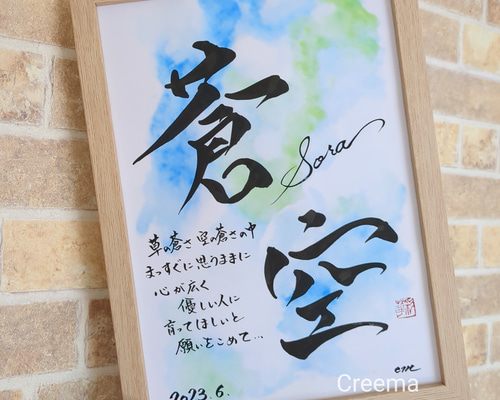 蒼空
Sora
草の蒼さ空の蒼さの中
まっすぐに思うままに
心が広く
優しい人に
育ってほしいと
願いをこめて…
2023.6.
Creema